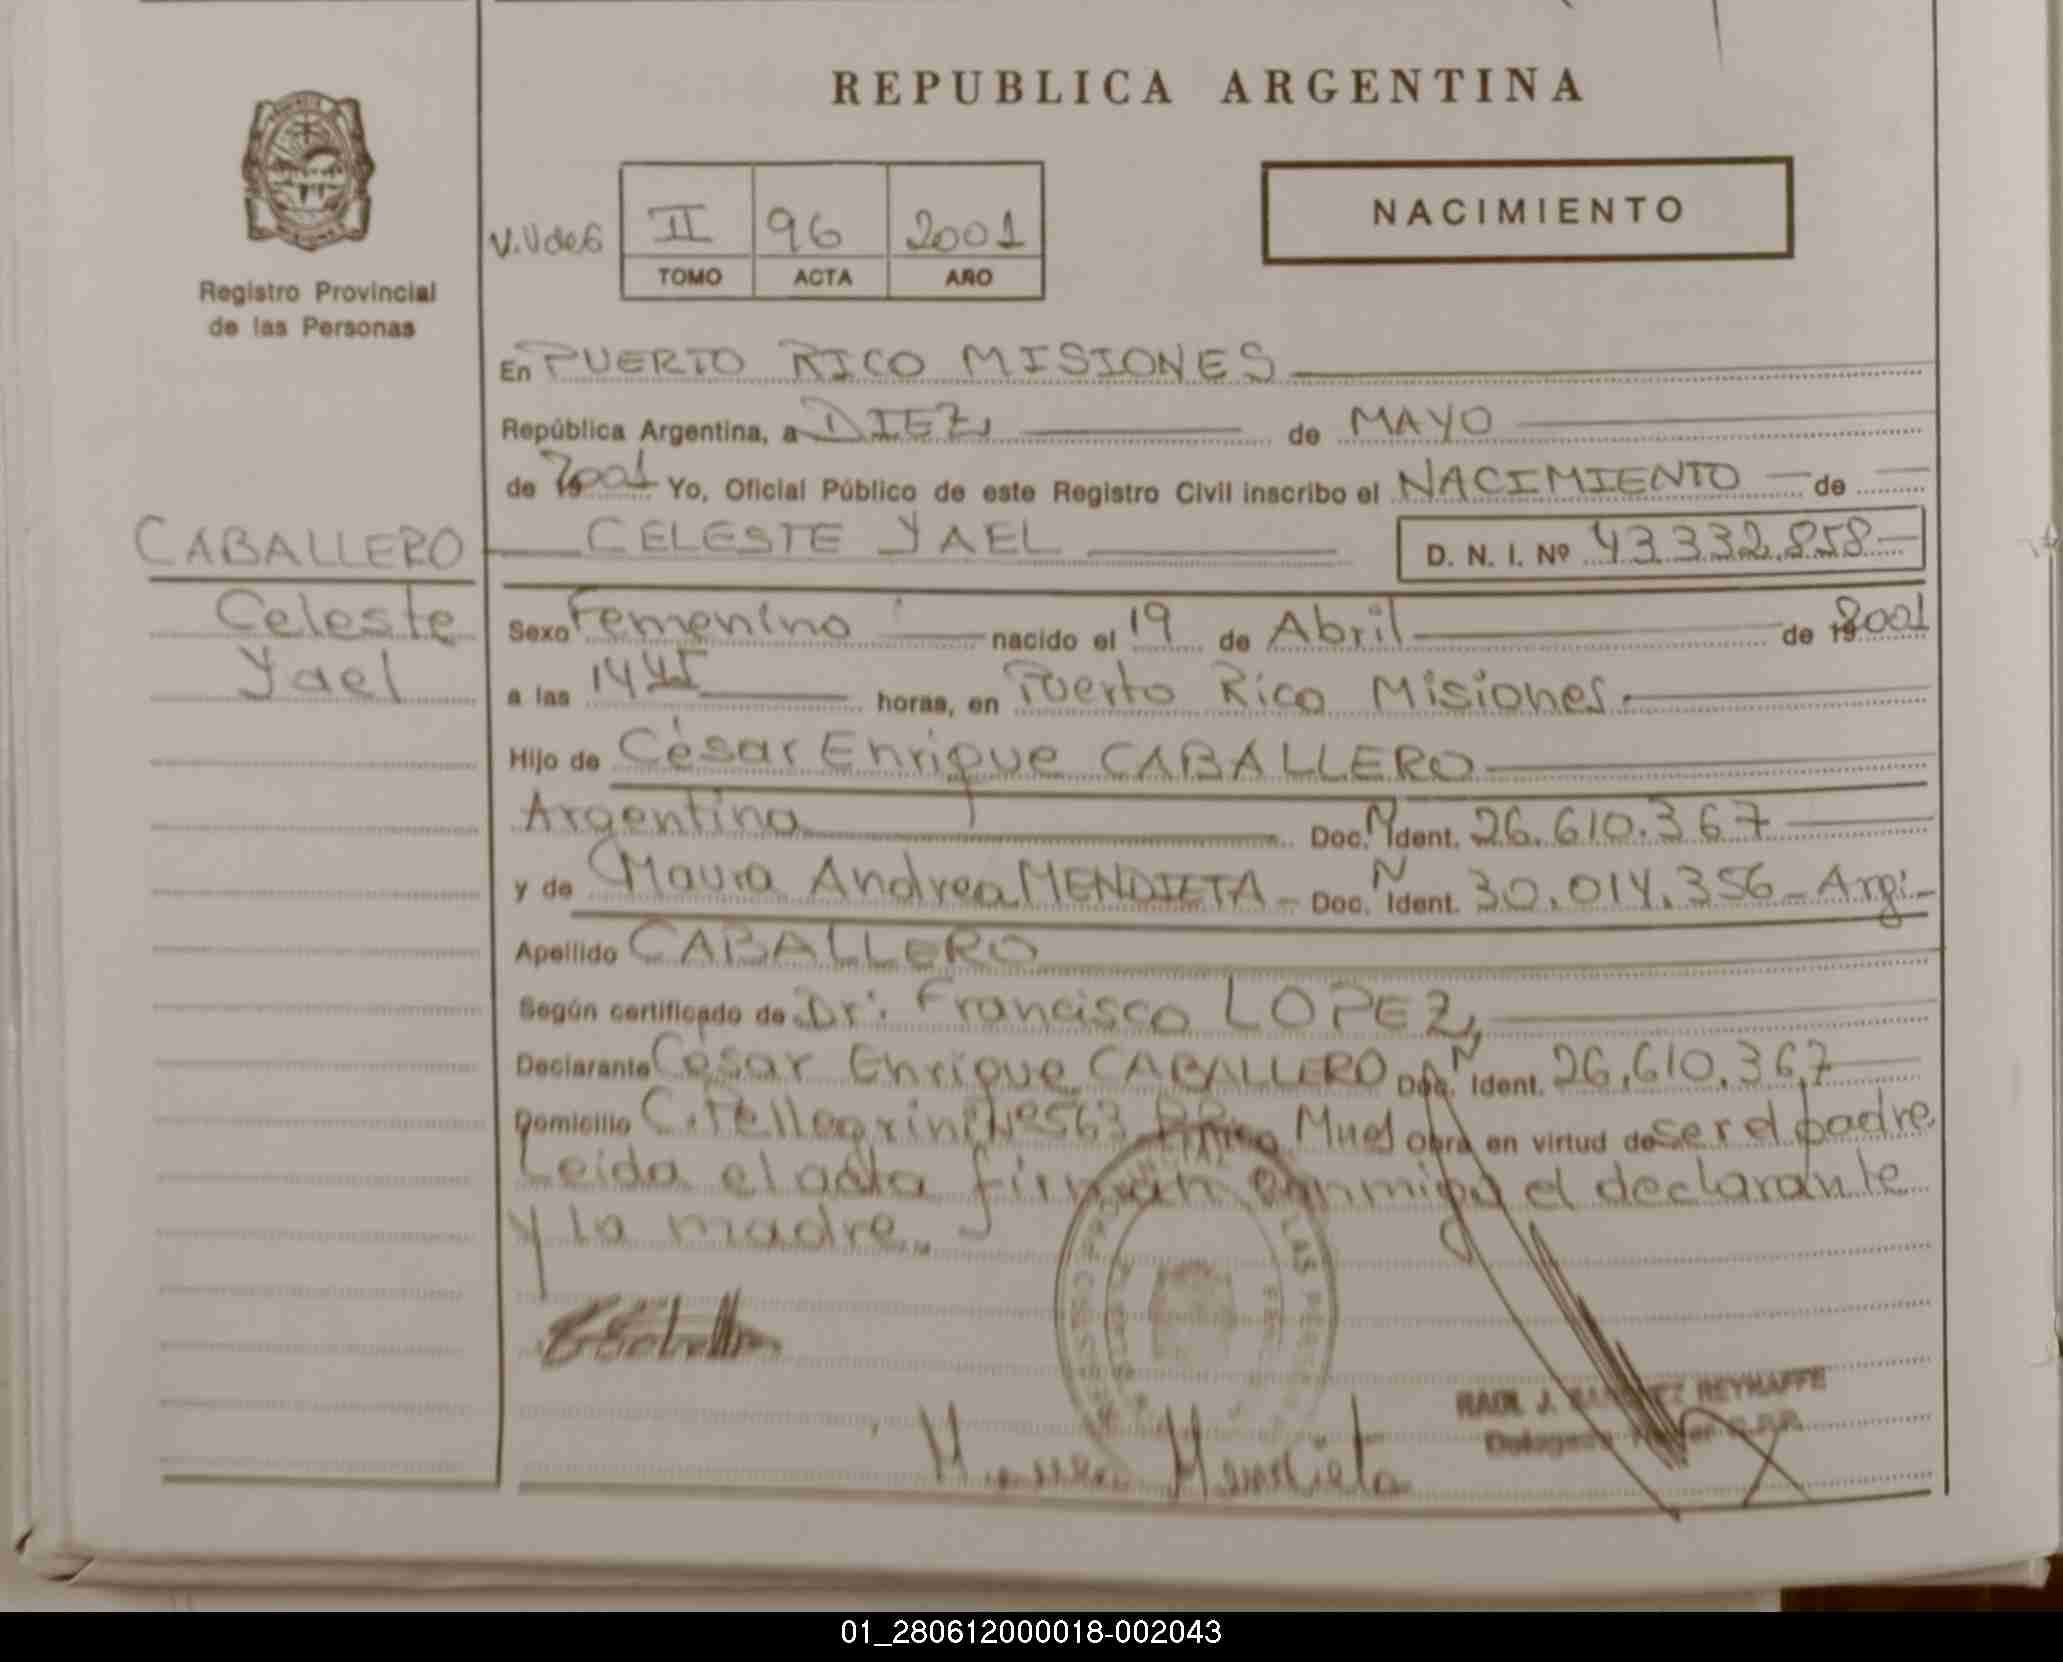 REPUBLICA ARGENTINA
Registro Provincial
de las Personas
II 96 2001
TOMO ACTA AÑO
NACIMIENTO
En PUERTO RICO MISIONES
República Argentina, a DIEZ, de MAYO
de 2001 Yo, Oficial Público de este Registro Civil inscribo el NACIMIENTO de
CABALLERO
Celeste
Yael
CELESTE YAEL D. N. I. Nº 43.332.858
Sexo Femenino nacido el 19 de Abril de 2001
a las 14 45 horas, en Puerto Rico Misiones.
Hijo de César Enrique CABALLERO
Argentina Doc. N Ident. 26.610.367
y de Maura Andrea MENDIETA - Doc. N Ident. 30.014.356 - Arg.
Apellido CABALLERO
Según certificado de Dr. Francisco LOPEZ,
Declarante César Enrique CABALLERO Doc. N Ident. 26.610.367
Domicilio C. Pellegrini Nº 563 Obra en virtud de ser el padre
Leida el acta firman conmigo el declarante
y la madre.
REGISTRO PROVINCIAL LAS PERSONAS
RAUL J. REYMAFFE
01_280612000018-002043